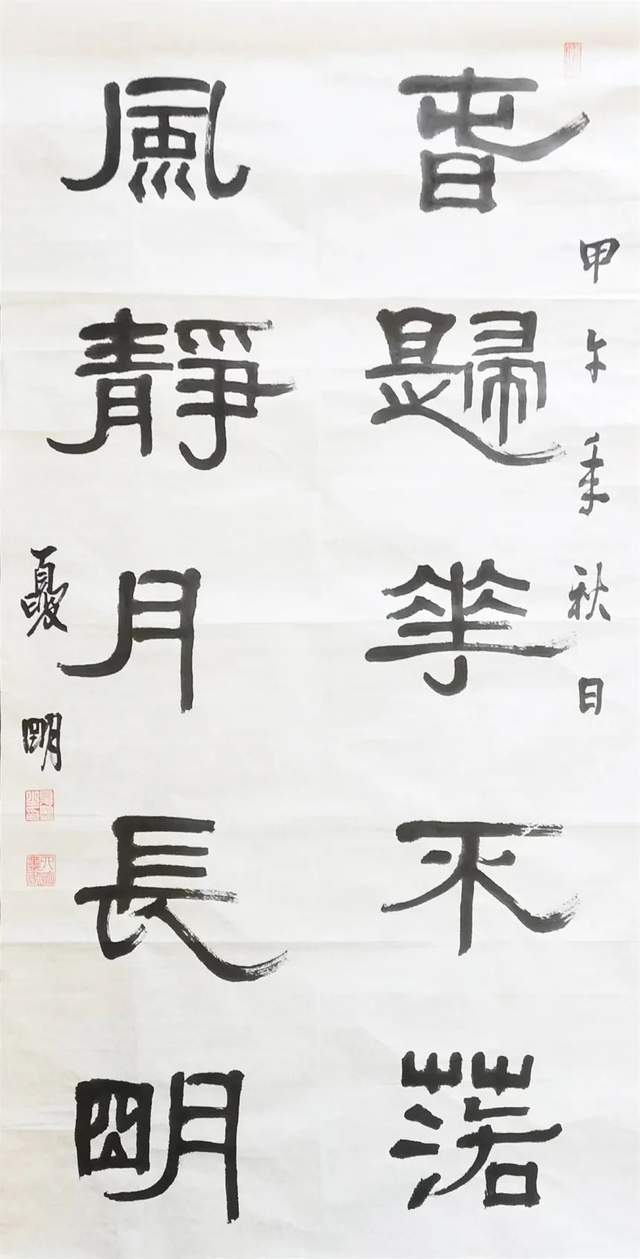 甲午年秋日
春歸華不落
風靜月長明
夏明